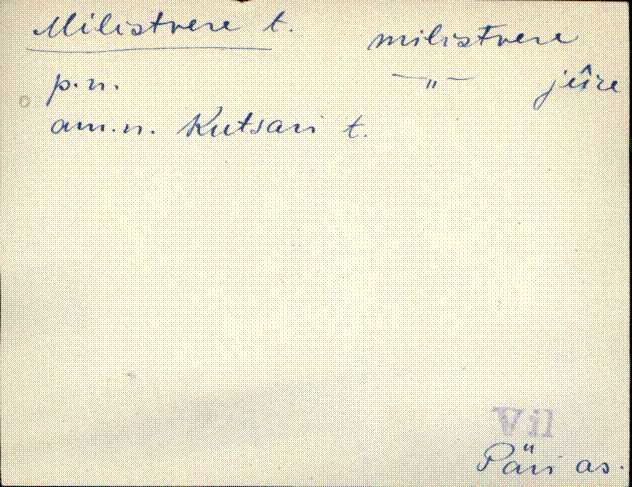 Milistvere t. milistvere
p.n. —„— jeire
am.n. Kutsari t.
Vil
Päri as.